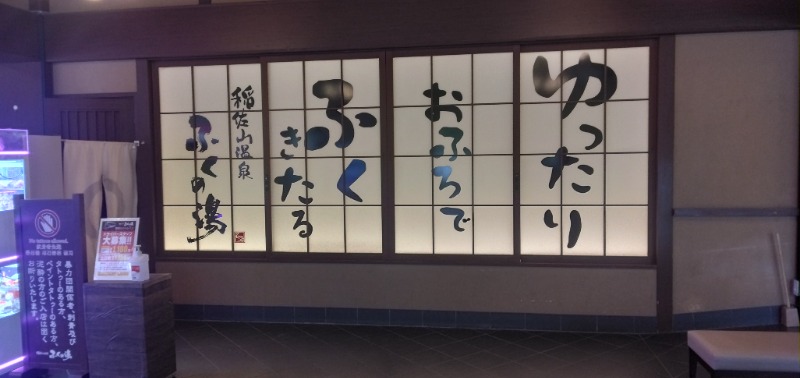 ゆったり
おふろで
ふく
きたる
稲佐山温泉
ふくの湯
No tattoos allowed.
暴力団関係者、刺青及び
タトゥーのある方、
ペイントタトゥーのある方、
泥酔の方のご入店は固く
お断りいたします。
ふくの湯
大募集!!